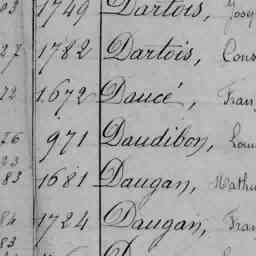 03 1749 Dartois, Jos
27 1782 Dartois, Cons
72 1.672 Daucé, Fran
76 971 Daudibon, Lou
23
83 1681 Daugan, Mathu
84 1724 Daugan, Fran
83